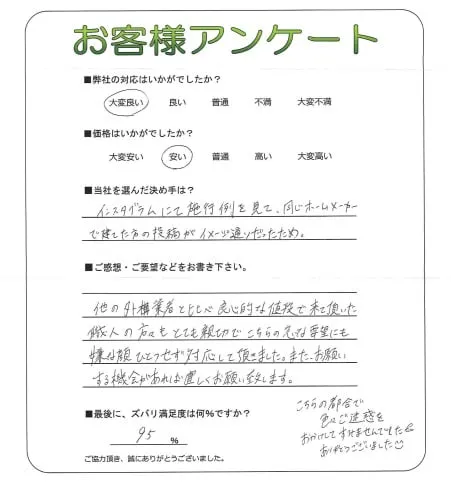 お客様アンケート
■弊社の対応はいかがでしたか？
大変良い 良い 普通 不満 大変不満
■価格はいかがでしたか？
大変安い 安い 普通 高い 大変高い
■当社を選んだ決め手は？
インスタグラムにて施行例を見て、同じホームメーカー
で建てた方の投稿がイメージ通りだったため。
■ご感想・ご要望などをお書き下さい。
他の外構業者とくらべ良心的な値段で来て頂いた
職人の方々もとても親切でこちらの急な要望にも
嫌な顔ひとつせず対応して頂きました。また、お願い
する機会があれば宜しくお願い致します。
■最後に、ズバリ満足度は何％ですか？
95 %
こちらの都合で
色々ご迷惑を
おかけしてすみませんでした
ありがとうございました
ご協力頂き、誠にありがとうございました。